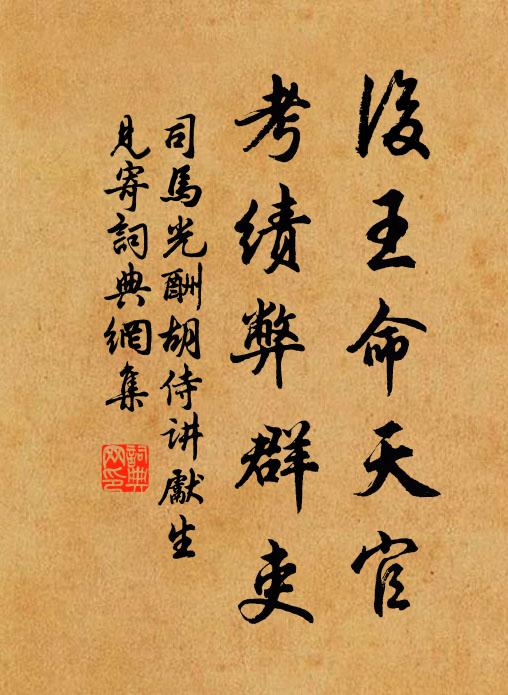 後王命天官
考績弊群吏
司馬光酬胡侍講獻生
見寄詞典網集
詞典網印